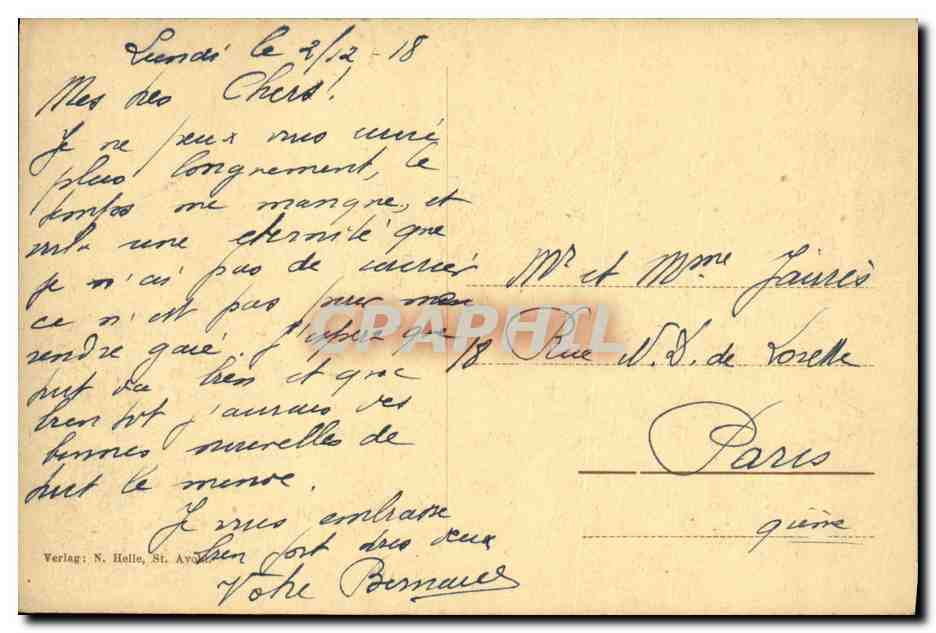 Lundi le 2/12 - 18
Mes très Chers!
Je ne peux vous écrire
plus longuement, le
temps me manque, et
voila une éternité que
je n'ai pas de courrier
ce n'est pas pour me
rendre gaie. J'espère que
tout va bien et que
bientôt j'aurais des
bonnes nouvelles de
tout le monde.
Je vous embrasse
bien fort tous deux
Votre Bernard
Verlag: N. Helle, St. Avold.
Mr et Mme Jaurès
18 Rue N. D. de Lorette
Paris
9ième
CPAPHIL